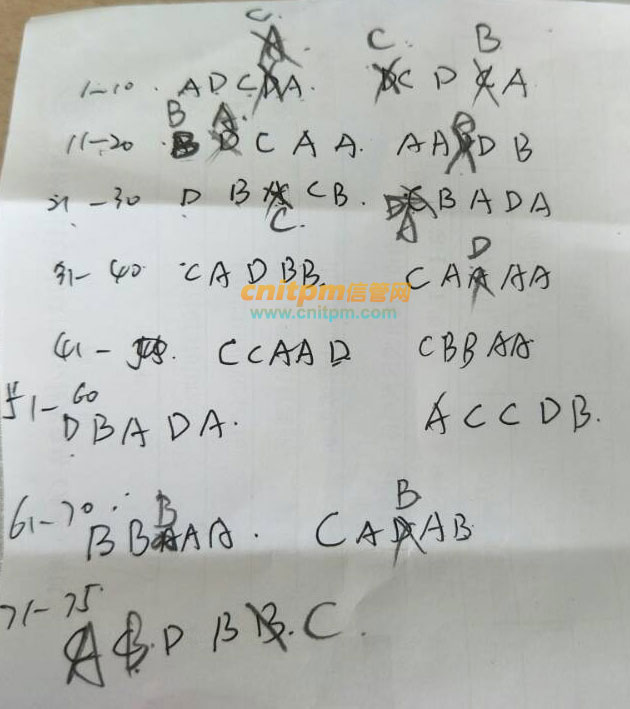 C. C. B
1-10. A D C A A. C D A
B A.
11-20 B C A A. A A D B
21-30 D B C B. B A D A
C. A
D
31-40 C A D B B. C A A A
cnitpm信管网
www.cnitpm.com
41- C C A A D C B B A A
51-60
D B A D A. A C C D B.
B B
61-70 B B A A. C A A B
71-75
D B C.